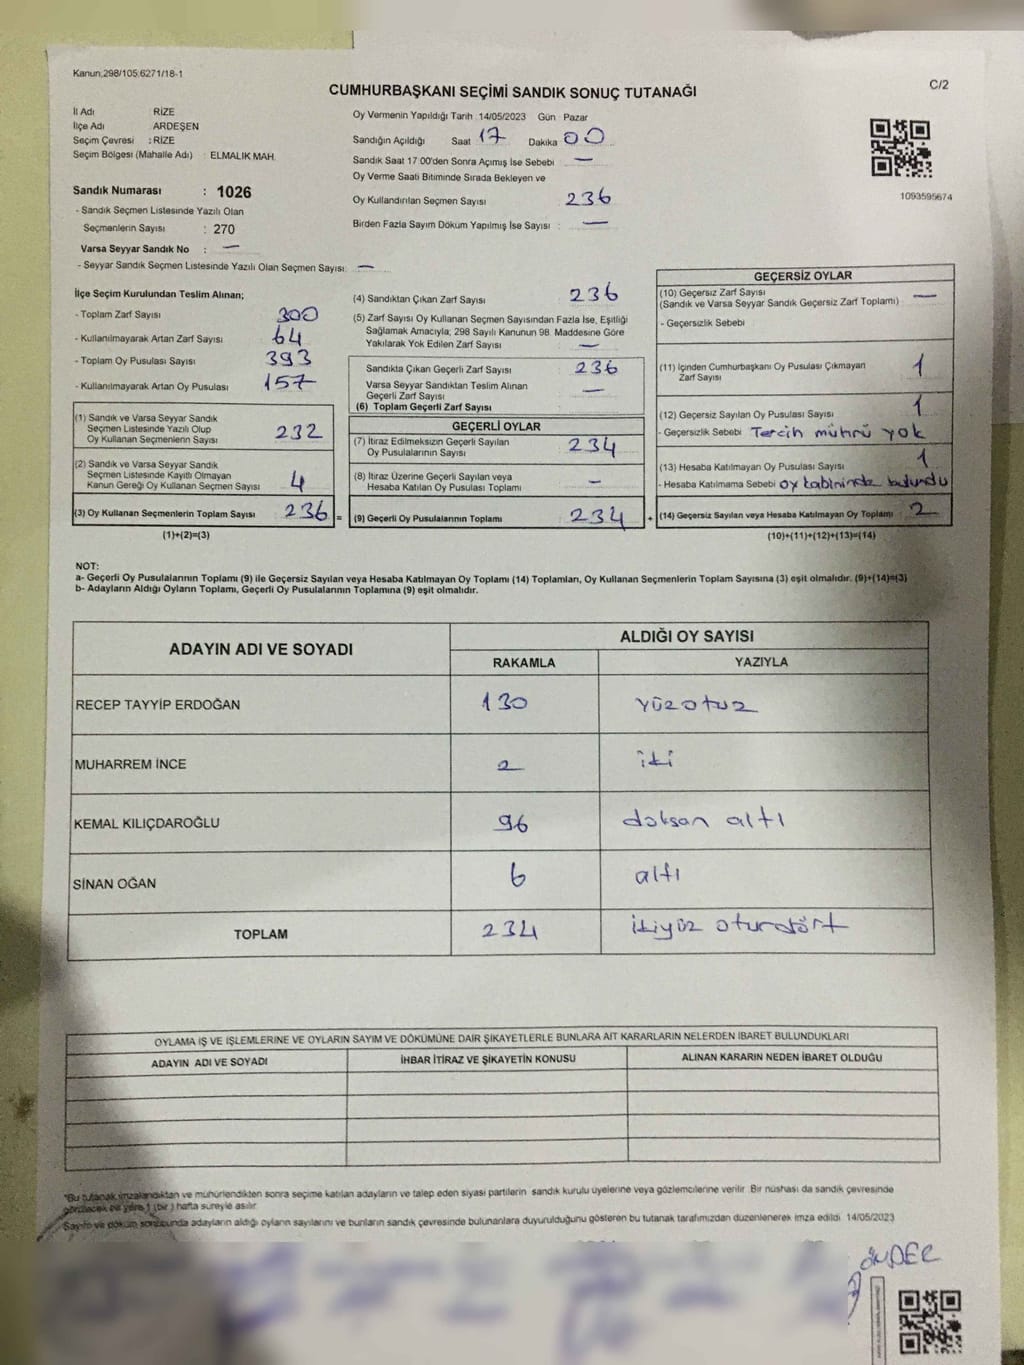 Kanun;298/105;6271/18-1
CUMHURBAŞKANI SEÇİMİ SANDIK SONUÇ TUTANAĞI
C/2
İl Adı : RİZE
İlçe Adı ARDEŞEN
Seçim Çevresi : RİZE
Seçim Bölgesi (Mahalle Adı) : ELMALIK MAH.
Sandık Numarası : 1026
- Sandık Seçmen Listesinde Yazılı Olan
Seçmenlerin Sayısı : 270
Varsa Seyyar Sandık No : —
- Seyyar Sandık Seçmen Listesinde Yazılı Olan Seçmen Sayısı: —
Oy Vermenin Yapıldığı Tarih 14/05/2023 Gün Pazar
Sandığın Açıldığı Saat 17 Dakika 00
Sandık Saat 17:00'den Sonra Açımış İse Sebebi —
Oy Verme Saati Bitiminde Sırada Bekleyen ve
Oy Kullandırılan Seçmen Sayısı 236
Birden Fazla Sayım Döküm Yapılmış İse Sayısı : —
1093595674
İlçe Seçim Kurulundan Teslim Alınan;
- Toplam Zarf Sayısı 300
- Kullanılmayarak Artan Zarf Sayısı 64
- Toplam Oy Pusulası Sayısı 393
- Kullanılmayarak Artan Oy Pusulası 157
(1) Sandık ve Varsa Seyyar Sandık
Seçmen Listesinde Yazılı Olup
Oy Kullanan Seçmenlerin Sayısı 232
(2) Sandık ve Varsa Seyyar Sandık
Seçmen Listesinde Kayıtlı Olmayan
Kanun Gereği Oy Kullanan Seçmen Sayısı 4
(3) Oy Kullanan Seçmenlerin Toplam Sayısı 236 =
(1)+(2)=(3)
(4) Sandıktan Çıkan Zarf Sayısı 236
(5) Zarf Sayısı Oy Kullanan Seçmen Sayısından Fazla İse, Eşitliği
Sağlamak Amacıyla; 298 Sayılı Kanunun 98. Maddesine Göre
Yakılarak Yok Edilen Zarf Sayısı —
Sandıkta Çıkan Geçerli Zarf Sayısı 236
Varsa Seyyar Sandıktan Teslim Alınan
Geçerli Zarf Sayısı —
(6) Toplam Geçerli Zarf Sayısı
GEÇERLİ OYLAR
(7) İtiraz Edilmeksizin Geçerli Sayılan
Oy Pusulalarının Sayısı 234
(8) İtiraz Üzerine Geçerli Sayılan veya
Hesaba Katılan Oy Pusulası Toplamı —
(9) Geçerli Oy Pusulalarının Toplamı 234 +
GEÇERSİZ OYLAR
(10) Geçersiz Zarf Sayısı —
(Sandık ve Varsa Seyyar Sandık Geçersiz Zarf Toplamı)
- Geçersizlik Sebebi
(11) İçinden Cumhurbaşkanı Oy Pusulası Çıkmayan
Zarf Sayısı 1
(12) Geçersiz Sayılan Oy Pusulası Sayısı 1
- Geçersizlik Sebebi Tercih mührü yok
(13) Hesaba Katılmayan Oy Pusulası Sayısı 1
- Hesaba Katılmama Sebebi oy kabininde bulundu
(14) Geçersiz Sayılan veya Hesaba Katılmayan Oy Toplamı : 2
(10)+(11)+(12)+(13)=(14)
NOT:
a- Geçerli Oy Pusulalarının Toplamı (9) ile Geçersiz Sayılan veya Hesaba Katılmayan Oy Toplamı (14) Toplamları, Oy Kullanan Seçmenlerin Toplam Sayısına (3) eşit olmalıdır. (9)+(14)=(3)
b- Adayların Aldığı Oyların Toplamı, Geçerli Oy Pusulalarının Toplamına (9) eşit olmalıdır.
ADAYIN ADI VE SOYADI ALDIĞI OY SAYISI
RAKAMLA YAZIYLA
RECEP TAYYİP ERDOĞAN 130 yüzotuz
MUHARREM İNCE 2 iki
KEMAL KILIÇDAROĞLU 96 doksan altı
SİNAN OĞAN 6 altı
TOPLAM 234 ikiyüz oturdört
OYLAMA İŞ VE İŞLEMLERİNE VE OYLARIN SAYIM VE DÖKÜMÜNE DAİR ŞİKAYETLERLE BUNLARA AİT KARARLARIN NELERDEN İBARET BULUNDUKLARI
ADAYIN ADI VE SOYADI İHBAR İTİRAZ VE ŞİKAYETİN KONUSU ALINAN KARARIN NEDEN İBARET OLDUĞU
"Bu tutanak imzalandıktan ve mühürlendikten sonra seçime katılan adayların ve talep eden siyasi partilerin sandık kurulu üyelerine veya gözlemcilerine verilir. Bir nüshası da sandık çevresinde
görülecek bir yere 1 (bir) hafta süreyle asılır.
Sayım ve döküm sonucunda adayların aldığı oyların sayılarını ve bunların sandık çevresinde bulunanlara duyurulduğunu gösteren bu tutanak tarafımızdan düzenlenerek imza edildi 14/05/2023
ÖNDER